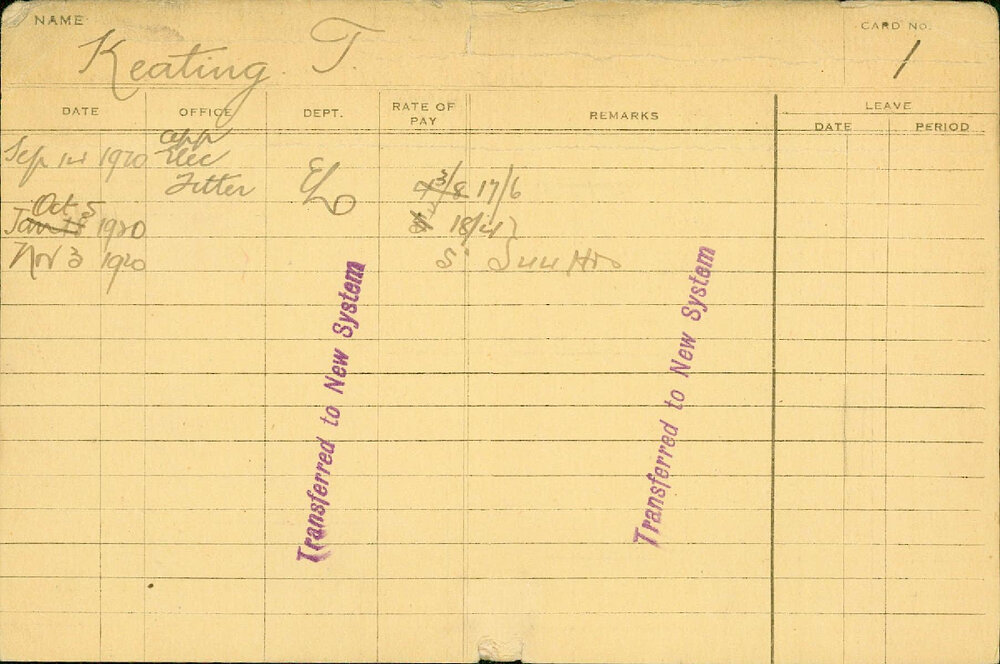 NAME
CARD NO.
Keating. T.
1
DATE OFFICE DEPT. RATE OF PAY REMARKS LEAVE
DATE PERIOD
App
Sep 14 1920 Elec
Fitter 3/8 17/6
Oct 5
1920 18/4
Nov 3 1920
Transferred to New System
Transferred to New System